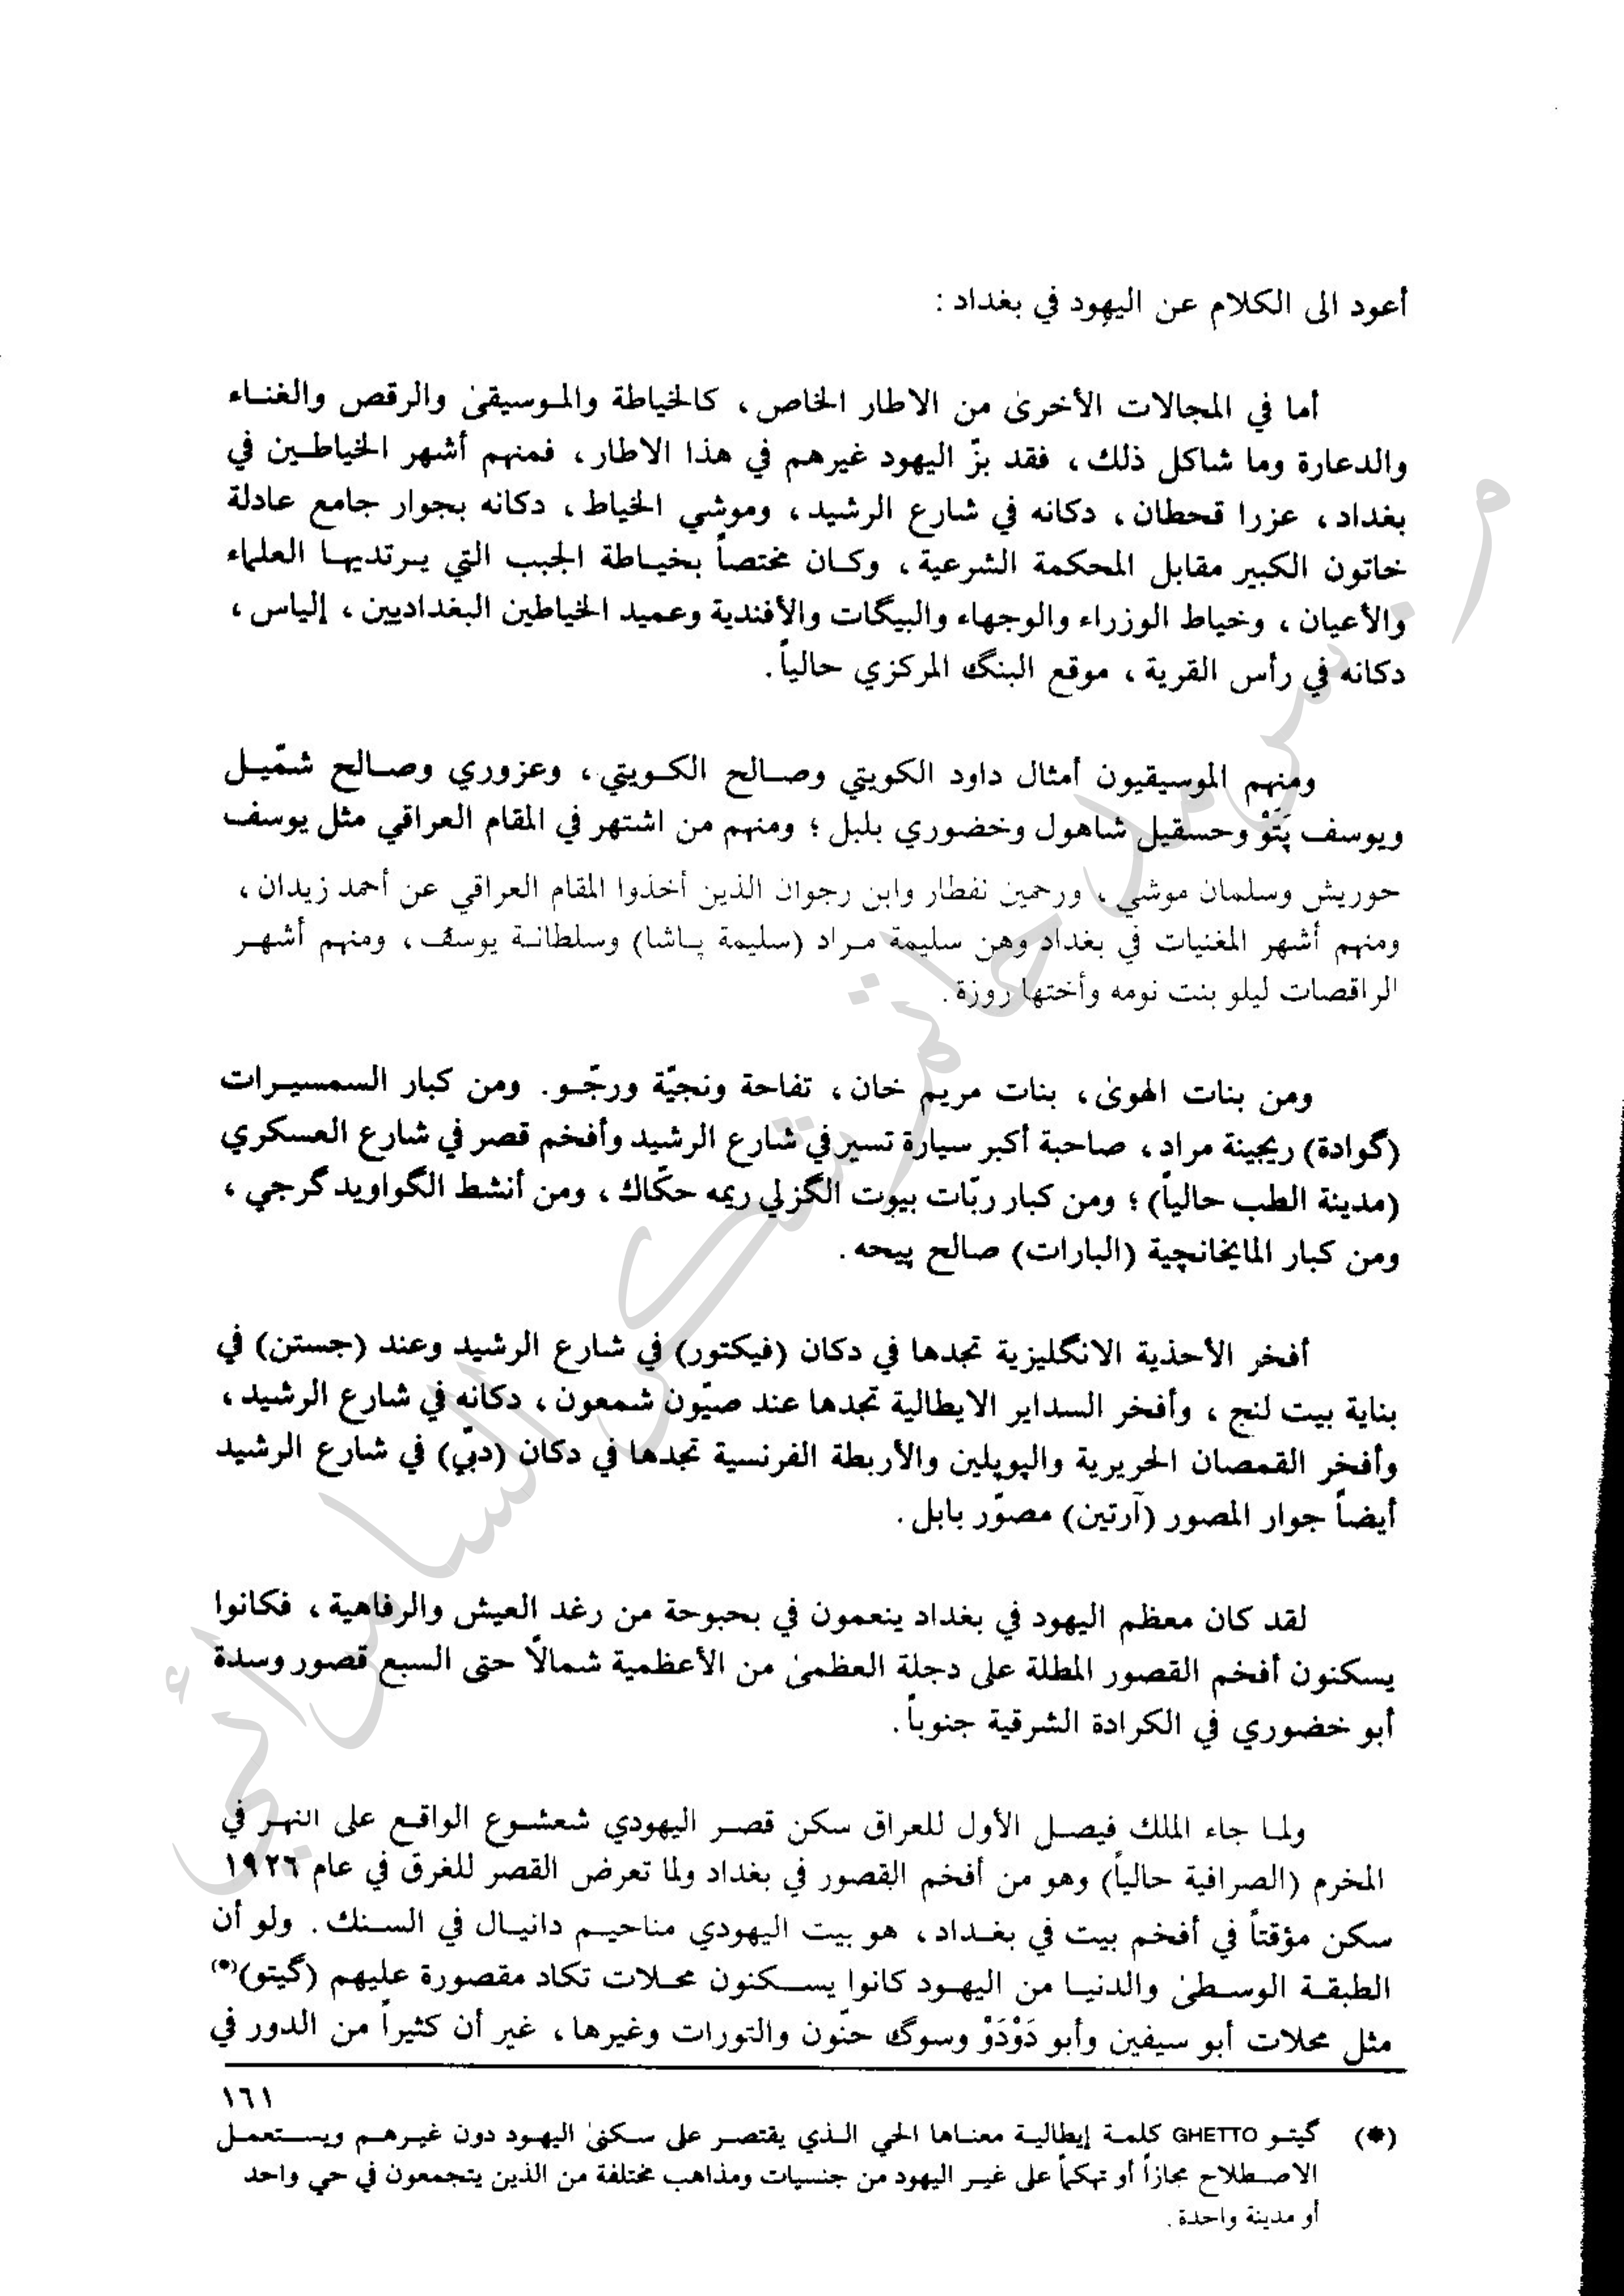 أعود الى الكلام عن اليهود في بغداد :
أما في المجالات الأخرىٰ من الاطار الخاص ، كالخياطة والموسيقىٰ والرقص والغناء
والدعارة وما شاكل ذلك ، فقد بزّ اليهود غيرهم في هذا الاطار ، فمنهم أشهر الخياطين في
بغداد ، عزرا قحطان ، دكانه في شارع الرشيد ، وموشي الخياط ، دكانه بجوار جامع عادلة
خاتون الكبير مقابل المحكمة الشرعية ، وكان مختصاً بخياطة الجبب التي يرتديها العلماء
والأعيان ، وخياط الوزراء والوجهاء والبيگات والأفندية وعميد الخياطين البغداديين ، إلياس ،
دكانه في رأس القرية ، موقع البنگ المركزي حالياً .
ومنهم الموسيقيون أمثال داود الكويتي وصالح الكويتي ، وعزوري وصالح شمّيل
ويوسف پَتَوْ وحسقيل شاهول وخضوري بلبل ؛ ومنهم من اشتهر في المقام العراقي مثل يوسف
حوريش وسلمان موشي ، ورحمين نفطار وابن رجوان الذين أخذوا المقام العراقي عن أحمد زيدان ،
ومنهم أشهر المغنيات في بغداد وهن سليمة مراد (سليمة پاشا) وسلطانة يوسف ، ومنهم أشهر
الراقصات ليلو بنت نومه وأختها روزة .
ومن بنات الهوىٰ ، بنات مريم خان ، تفاحة ونجيّة ورجّو . ومن كبار السمسيرات
(گوادة) ريجينة مراد ، صاحبة أكبر سيارة تسير في شارع الرشيد وأفخم قصر في شارع العسكري
(مدينة الطب حالياً) ؛ ومن كبار ربّات بيوت الگزلي ريمه حكّاك ، ومن أنشط الگواويد گرجي ،
ومن كبار المايخانچية (البارات) صالح پيحه .
أفخر الأحذية الانگليزية تجدها في دكان (فيكتور) في شارع الرشيد وعند (جستن) في
بناية بيت لنج ، وأفخر السداير الايطالية تجدها عند صيّون شمعون ، دكانه في شارع الرشيد ،
وأفخر القمصان الحريرية والپوپلين والأربطة الفرنسية تجدها في دكان (دبّي) في شارع الرشيد
أيضاً جوار المصور (آرتين) مصوّر بابل .
لقد كان معظم اليهود في بغداد ينعمون في بحبوحة من رغد العيش والرفاهية ، فكانوا
يسكنون أفخم القصور المطلة على دجلة العظمىٰ من الأعظمية شمالاً حتى السبع قصور وسدة
أبو خضوري في الكرادة الشرقية جنوباً .
ولما جاء الملك فيصل الأول للعراق سكن قصر اليهودي شعشوع الواقع على النهر في
المخرم (الصرافية حالياً) وهو من أفخم القصور في بغداد ولما تعرض القصر للغرق في عام ١٩٢٦
سكن مؤقتاً في أفخم بيت في بغداد ، هو بيت اليهودي مناحيم دانيال في السنك . ولو أن
الطبقة الوسطىٰ والدنيا من اليهود كانوا يسكنون محلات تكاد مقصورة عليهم (گيتو)(*)
مثل محلات أبو سيفين وأبو دَوْدَوْ وسوگ حنّون والتورات وغيرها ، غير أن كثيراً من الدور في
١٦١
(*) گيتو GHETTO كلمة إيطالية معناها الحي الذي يقتصر على سكنىٰ اليهود دون غيرهم ويستعمل
الاصطلاح مجازاً أو تهكماً على غير اليهود من جنسيات ومذاهب مختلفة من الذين يتجمعون في حي واحد
أو مدينة واحدة .